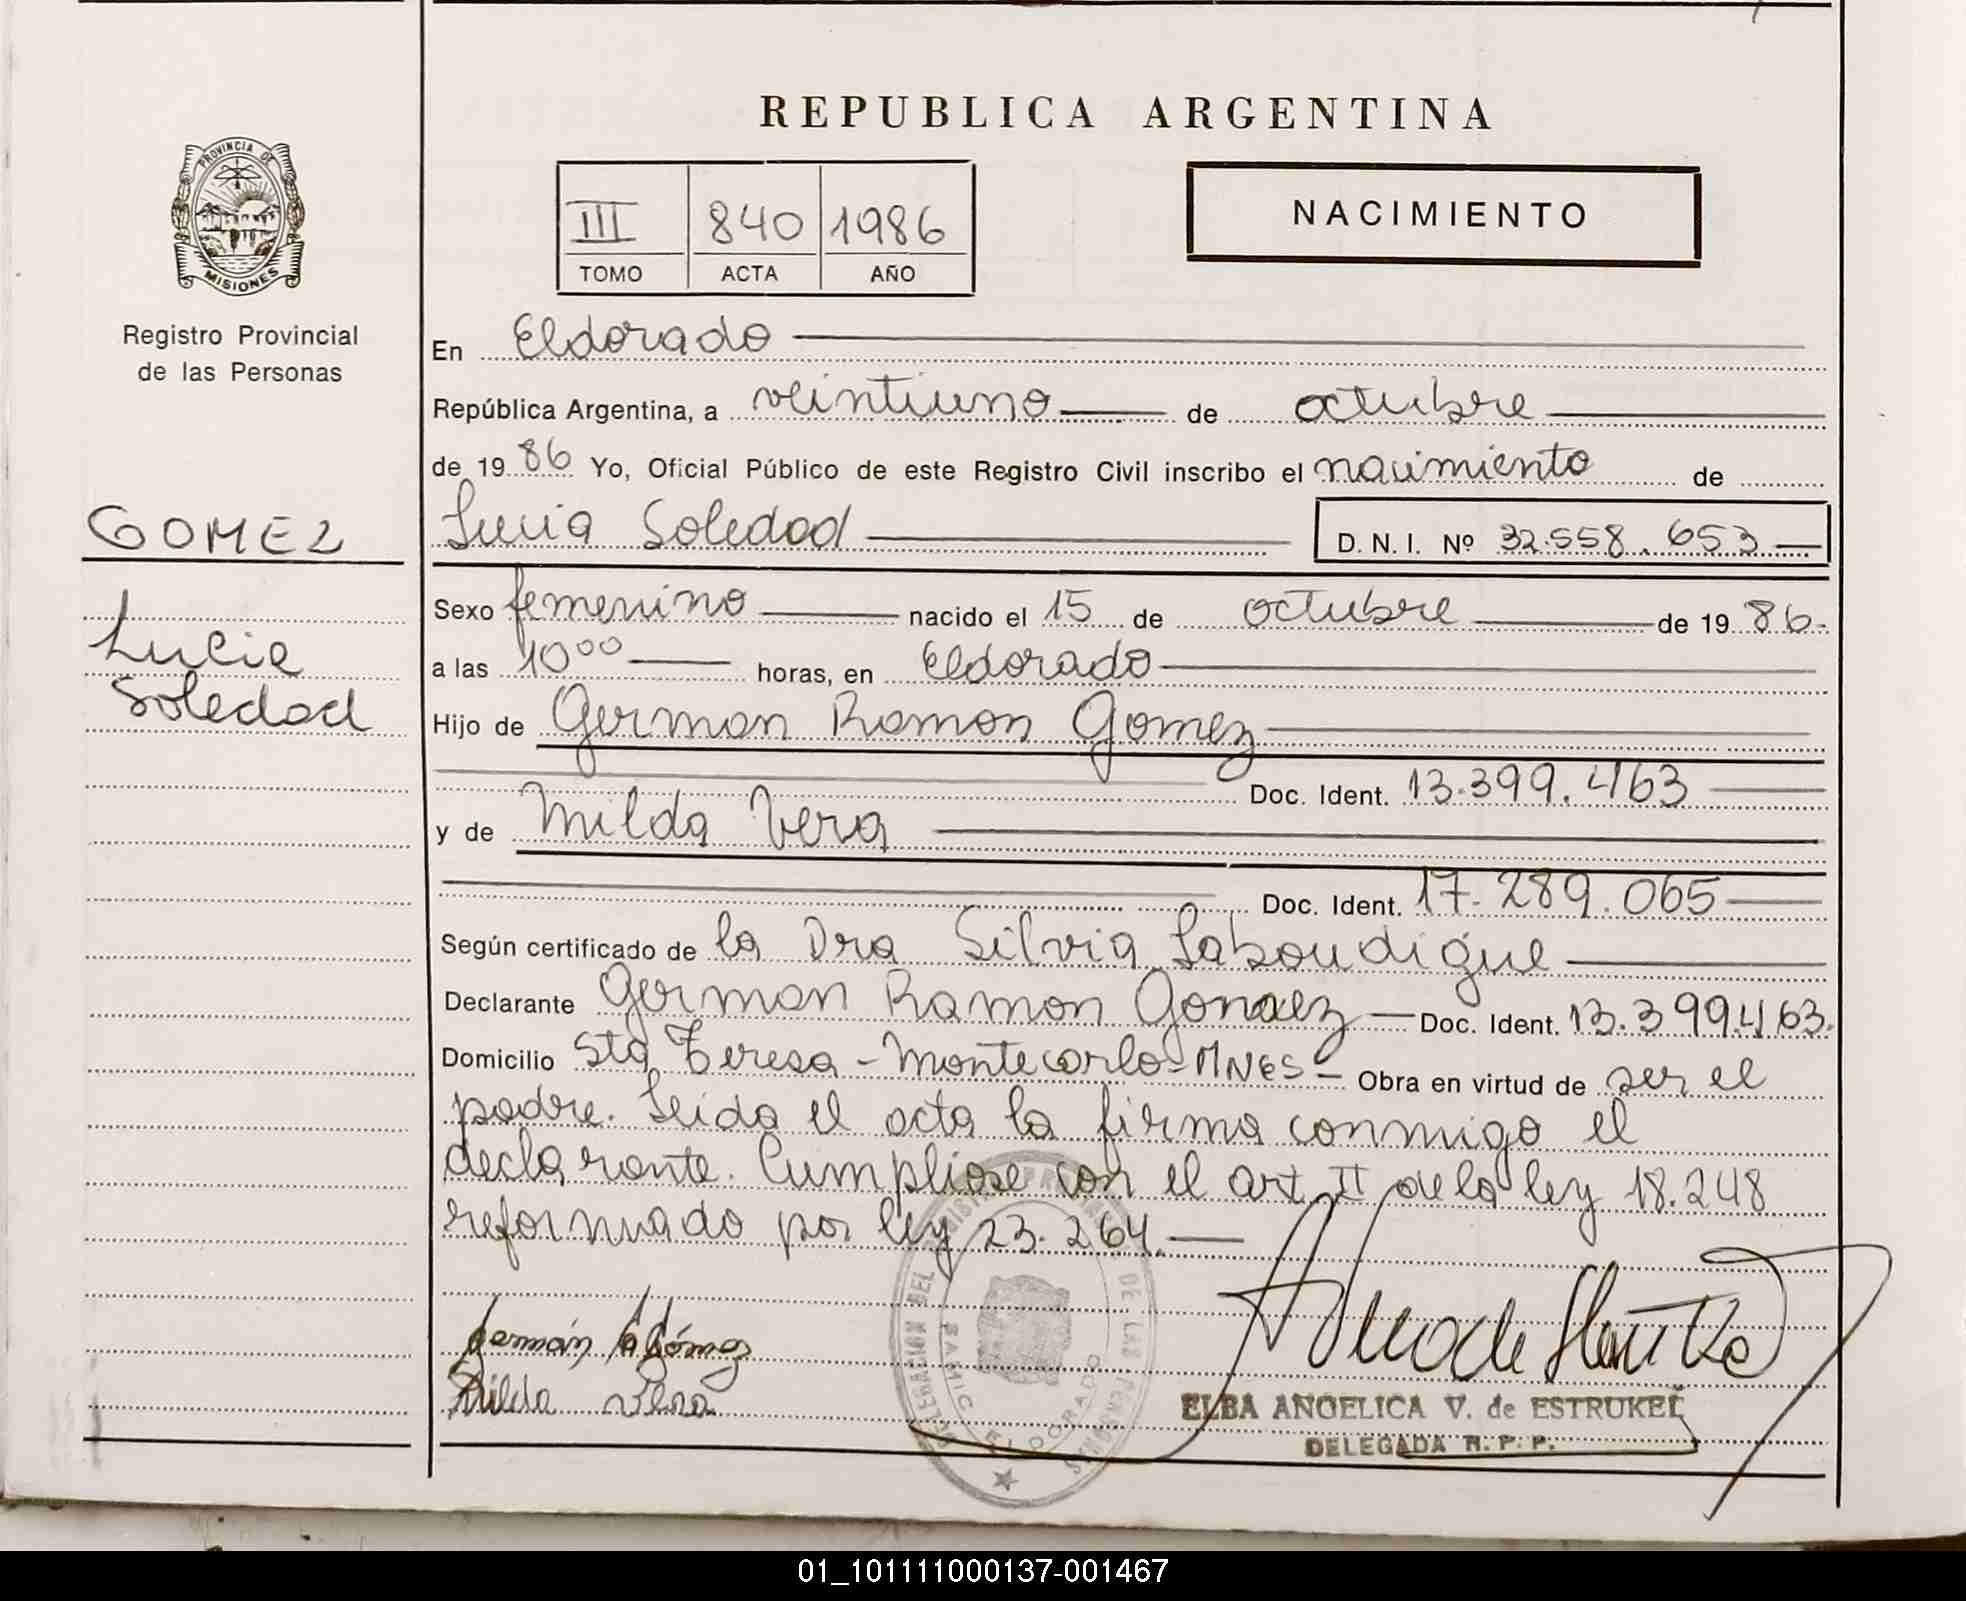 REPUBLICA ARGENTINA
PROVINCIA DE
MISIONES
Registro Provincial
de las Personas
III 840 1986
TOMO ACTA AÑO
NACIMIENTO
En Eldorado
República Argentina, a veintiuno de octubre
de 19 86 Yo, Oficial Público de este Registro Civil inscribo el nacimiento de
GOMEZ
Lucia Soledad D. N. I. Nº 32.558.653
Lucia
Soledad
Sexo femenino nacido el 15 de octubre de 19 86.
a las 10⁰⁰ horas, en Eldorado
Hijo de German Ramon Gomez
Doc. Ident. 13.399.463
y de Milda Vera
Doc. Ident. 17.289.065
Según certificado de la Dra Silvia Laboudigue
Declarante German Ramon Gomez Doc. Ident. 13.399.463.
Domicilio Sta Teresa - Montecarlo - MNES - Obra en virtud de ser el
padre. Leida el acta la firma conmigo el
declarante. Cumpliose con el art II de la ley 18.248
reformado por ley 23.264.
Germán R Gómez
Milda Vera
ELBA ANGELICA V. de ESTRUKEL
DELEGADA R. P. P.
ELDORADO
01_101111000137-001467